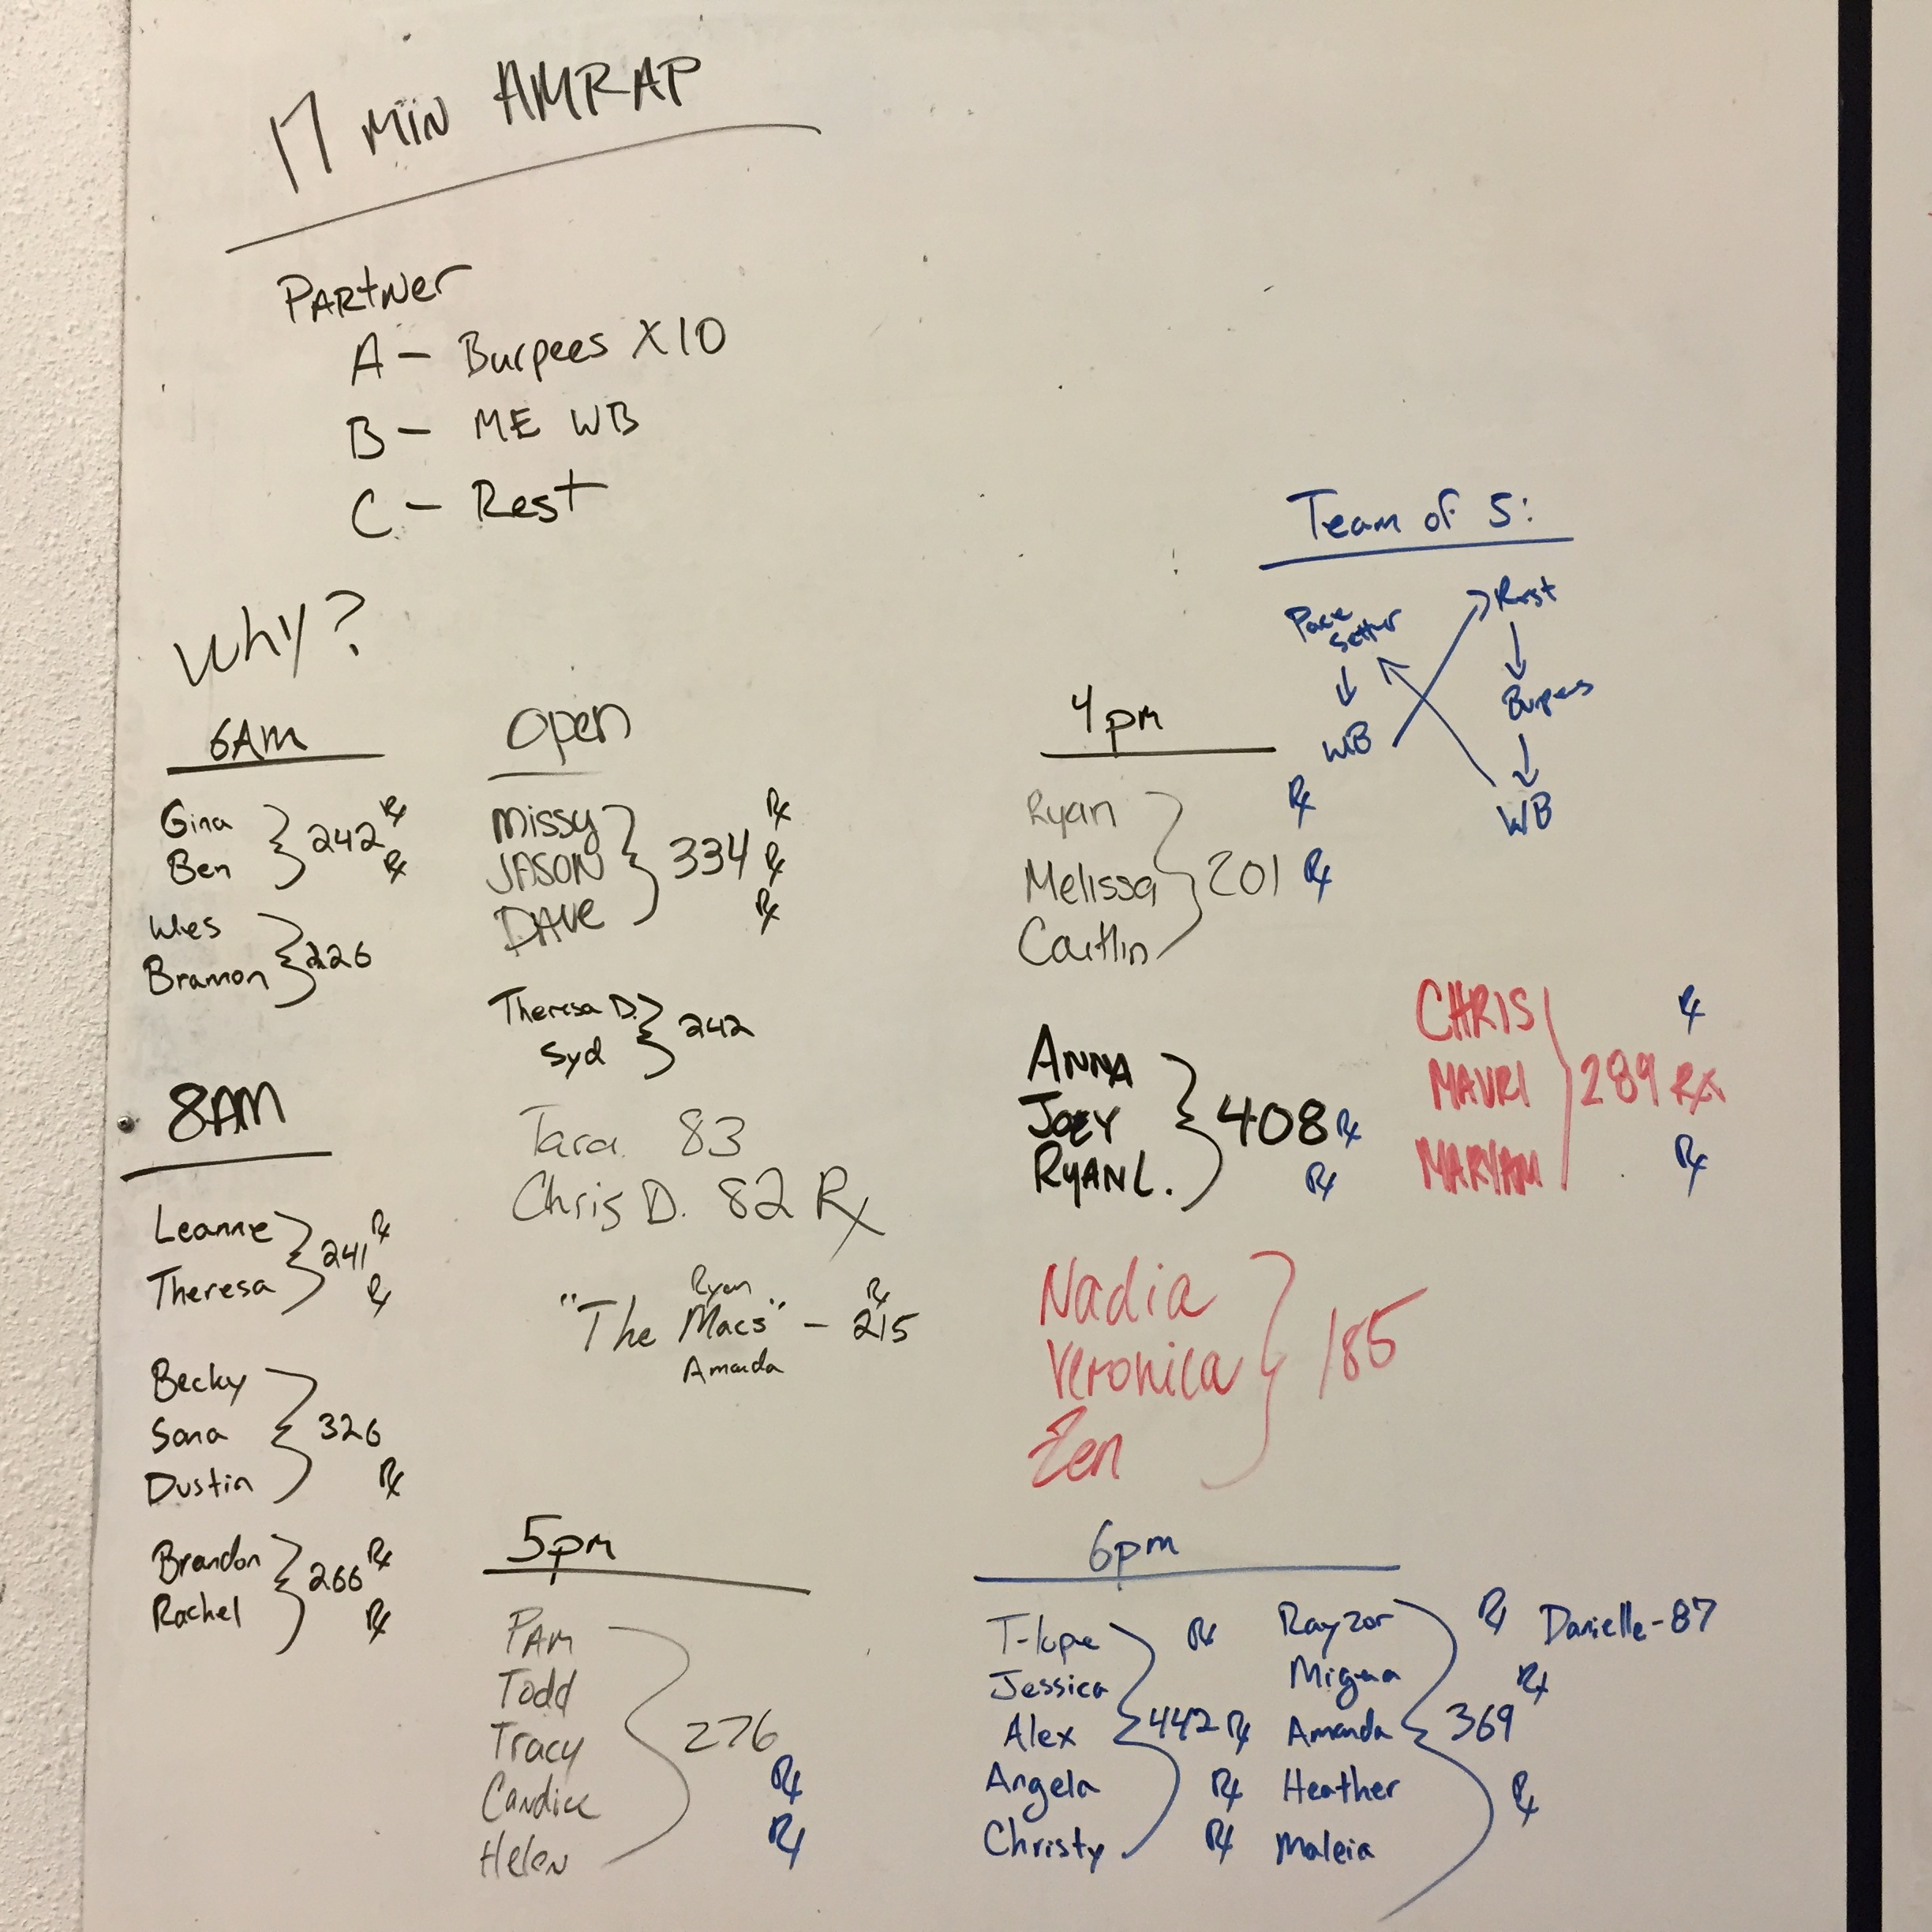 17 MIN AMRAP
Partner
A - Burpees X10
B - ME WB
C - Rest
Why?
Team of 5:
Pace setter
↓
WB
Rest
↓
Burpees
↓
WB
6AM
Gina
Ben
242 Rx
Rx
Wes
Bramon
226
8AM
Leanne
Theresa
241 Rx
Rx
Becky
Sana
Dustin
326
Rx
Brandon
Rachel
266 Rx
Rx
Open
Missy
JASON
DAVE
Rx
334 Rx
Rx
Theresa D.
Syd
242
Tara 83
Chris D. 82 Rx
Ryan
"The Macs" - 215 Rx
Amanda
4pm
Ryan
Melissa
Caitlin
Rx
201 Rx
ANNA
JOEY
RYAN L.
408 Rx
Rx
CHRIS
MAURI
MARYAM
Rx
289 Rx
Rx
Nadia
Veronica
Zen
185
5pm
PAM
Todd
Tracy
Candice
Helen
276
Rx
Rx
6pm
T-lope
Jessica
Alex
Angela
Christy
Rx
442 Rx
Rx
Rx
Rayzor
Amanda
Heather
Maleia
Rx
Rx
369
Rx
Danielle-87